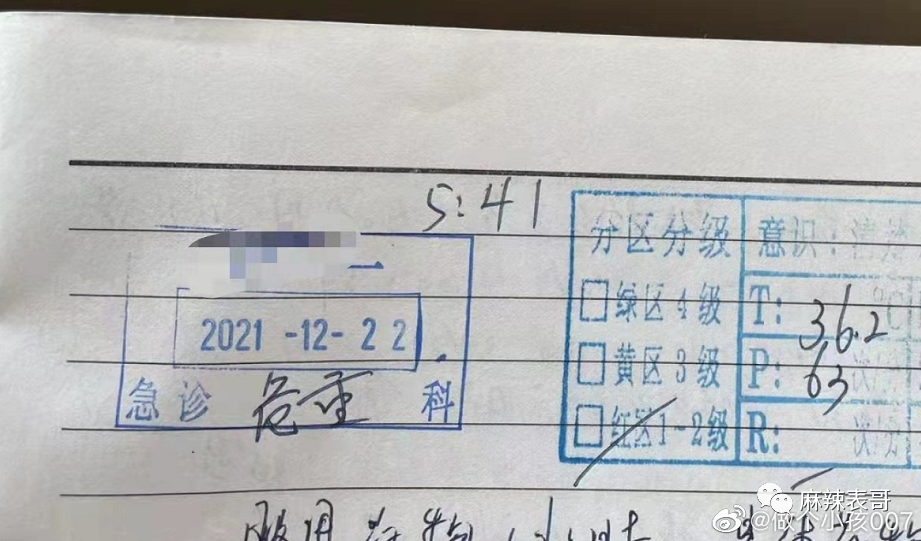 5:41
分区分级 意识：清楚
2021-12-22
□绿区4级 T: 36.2 ℃
□黄区3级 P: 63 次/分
急诊 危重 科
□红区1~2级 R: 次/分
服用药物1小时
麻辣表哥
@做个小孩007